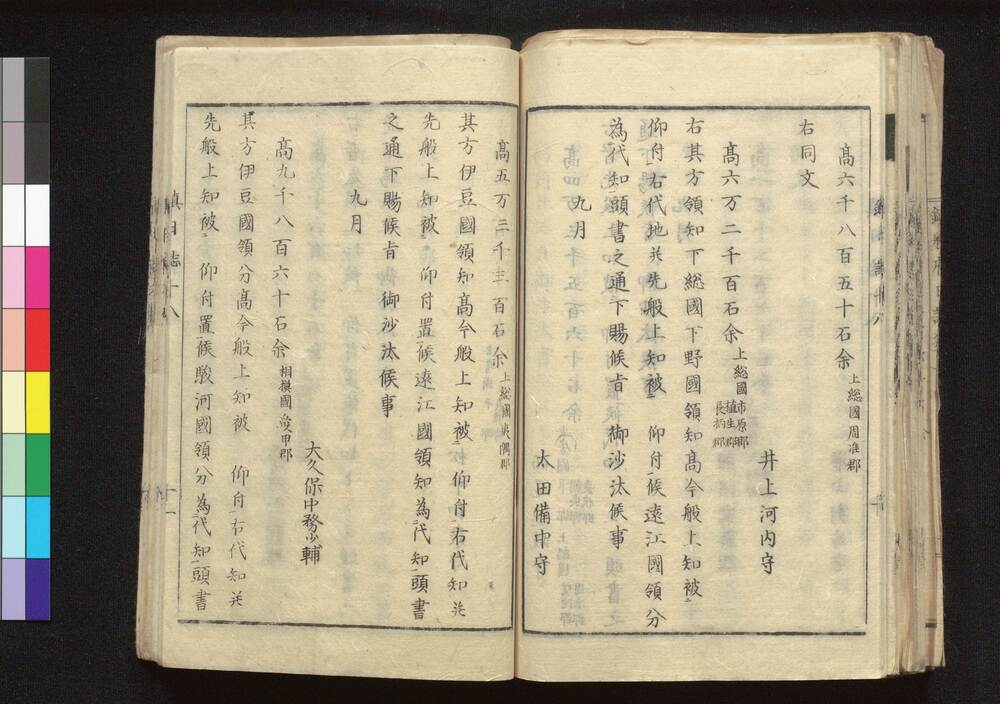 高六千八百五十石余 上総國周准郡
右同文
井上河内守
高六万二千百石余 上総國 市原郡 埴生郡 長柄郡
右其方領知下総國下野國領知高今般上知被
仰付右代地并先般上知被 仰付候遠江國領分
為代知頭書之通下賜候旨御沙汰候事
九月
太田備中守
高五万三千三百石余 上総國夷隅郡
其方伊豆國領知高今般上知被 仰付右代知并
先般上知被 仰付置候遠江國領知為代知頭書
之通下賜候旨御沙汰候事
九月
大久保中務少輔
高九千八百六十石余 相摸國愛甲郡
其方伊豆國領分高今般上知被 仰付右代知并
先般上知被 仰付置候駿河國領分為代知頭書
鎮日誌十八
十一